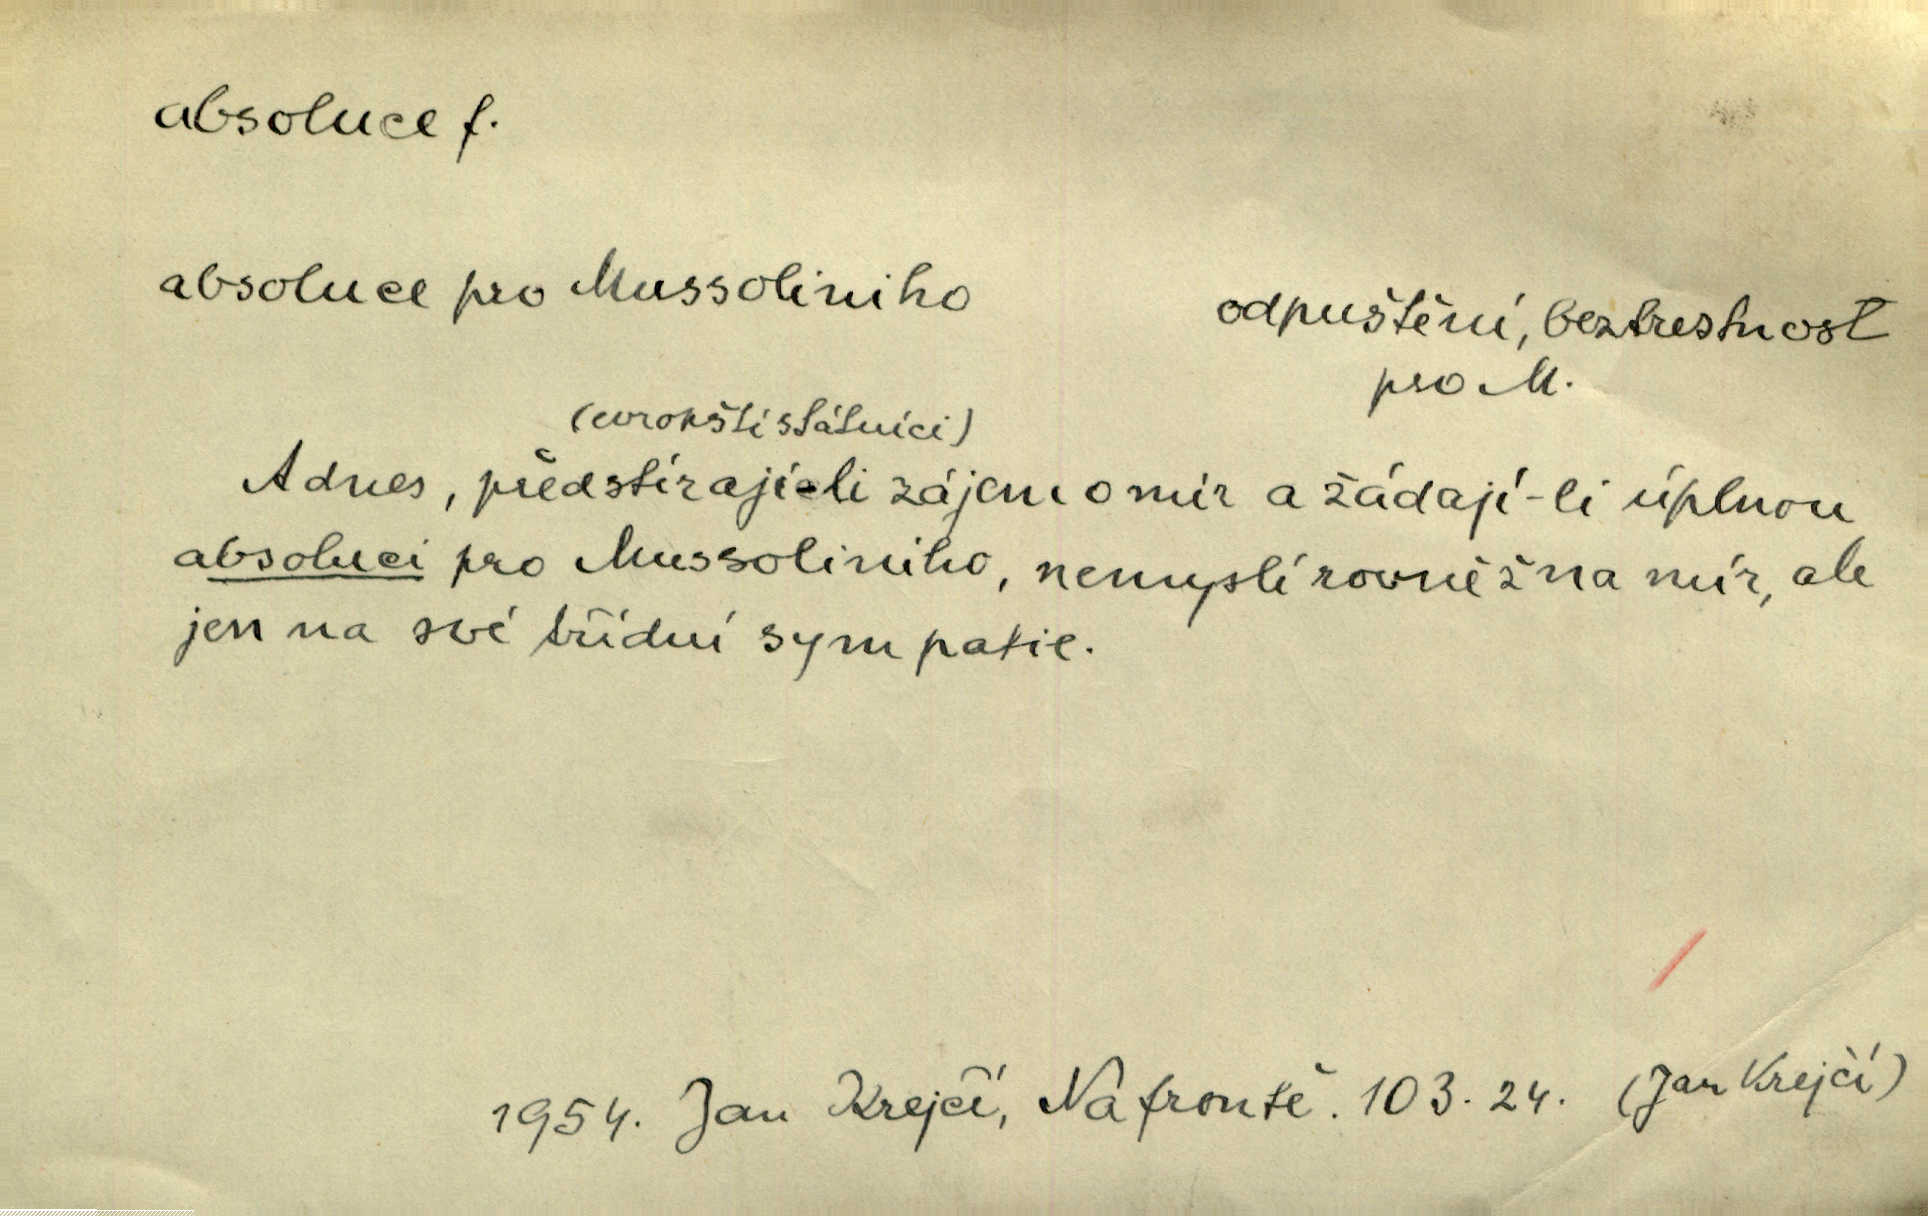 absoluce f.
absoluce pro Mussoliniho
odpuštění, beztrestnost
pro M.
(evropští státníci)
A dnes, předstírají-li zájem o mír a žádají-li úplnou
absoluci pro Mussoliniho, nemyslí rovněž na mír, ale
jen na své třídní sympatie.
1954. Jan Krejčí, Na frontě. 103. 24. (Jan Krejčí)